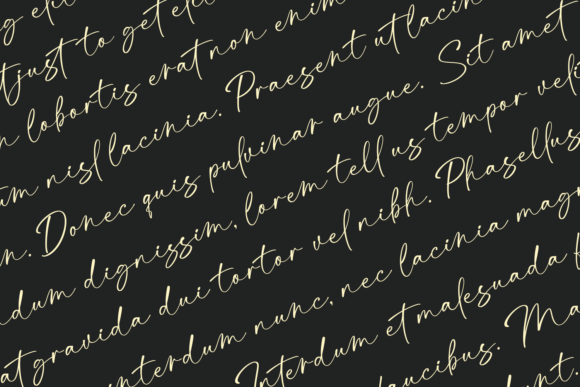 g elit
tjust to get eli
n lobortis erat non enim
um nisl lacinia. Praesent ut lacin
n. Donec quis pulvinar augue. Sit amet
ndum dignissim, lorem tell us tempor veli
at gravida dui tortor vel nibh. Phasellus
interdum nunc, nec lacinia magn
Interdum et malesuada f
faucibus. Ma
unt.